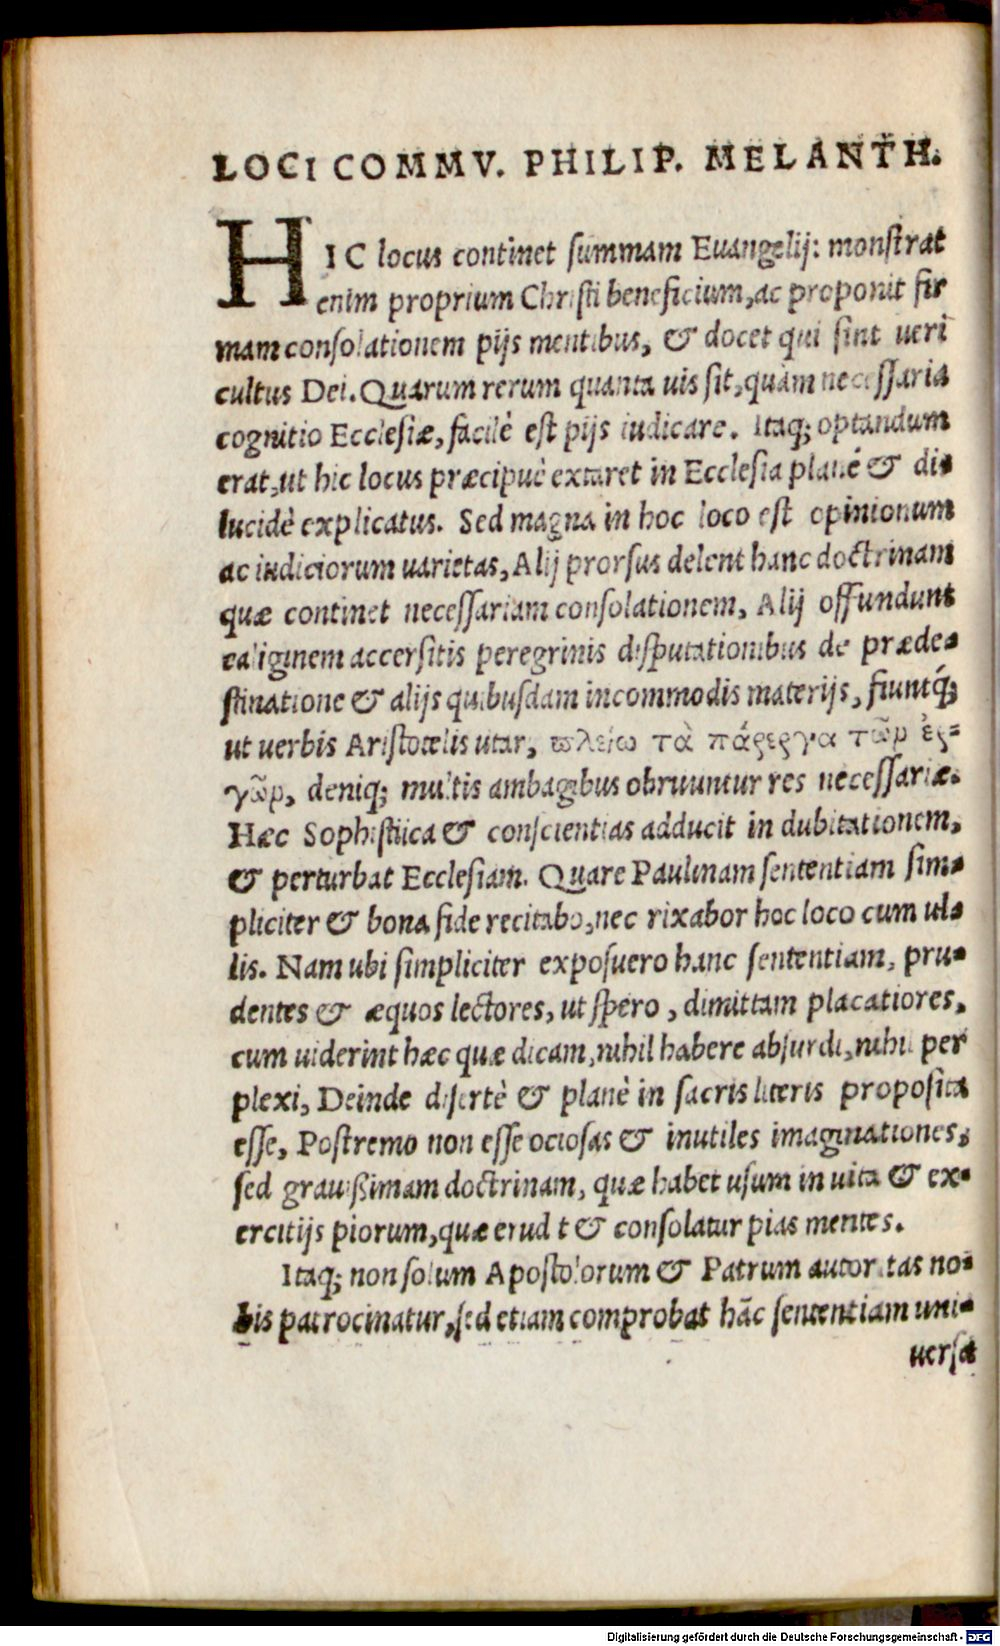 LOCI COMMV. PHILIP. MELANTH.
HIC locus continet summam Euangelij: monstrat
enim proprium Christi beneficium, ac proponit fir
mam consolationem pijs mentibus, & docet qui sint ueri
cultus Dei. Quarum rerum quanta uis sit, quàm necessaria
cognitio Ecclesiæ, facilè est pijs iudicare. Itaq; optandum
erat, ut hic locus præcipuè extaret in Ecclesia planè & di-
lucidè explicatus. Sed magna in hoc loco est opinionum
ac iudiciorum uarietas, Alij prorsus delent hanc doctrinam
quæ continet necessariam consolationem, Alij offundunt
caliginem accersitis peregrinis disputationibus de præde-
stinatione & alijs quibusdam incommodis materijs, fiuntq́;
ut uerbis Aristotelis utar, πλείω τὰ πάρεργα τῶν ἔρ-
γων, deniq; multis ambagibus obruuntur res necessariæ.
Hæc Sophistica & conscientias adducit in dubitationem,
& perturbat Ecclesiam. Quare Paulinam sententiam sim-
pliciter & bona fide recitabo, nec rixabor hoc loco cum ul-
lis. Nam ubi simpliciter exposuero hanc sententiam, pru-
dentes & æquos lectores, ut spero, dimittam placatiores,
cum uiderint hæc quæ dicam, nihil habere absurdi, nihil per
plexi, Deinde disertè & planè in sacris literis proposita
esse, Postremo non esse ociosas & inutiles imaginationes,
sed grauißimam doctrinam, quæ habet usum in uita & ex-
ercitijs piorum, quæ erudit & consolatur pias mentes.
Itaq; non solum Apostolorum & Patrum autoritas no-
bis patrocinatur, sed etiam comprobat hāc sententiam uni-
uersæ
Digitalisierung gefördert durch die Deutsche Forschungsgemeinschaft - DFG